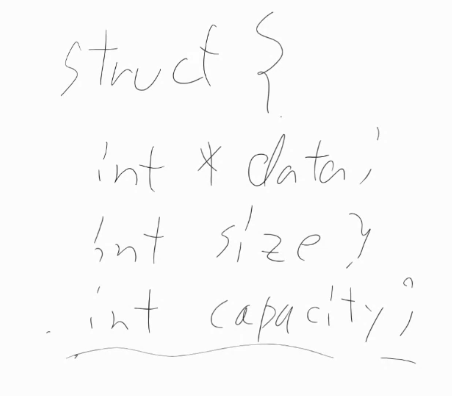 struct {
int * data;
int size;
int capacity;